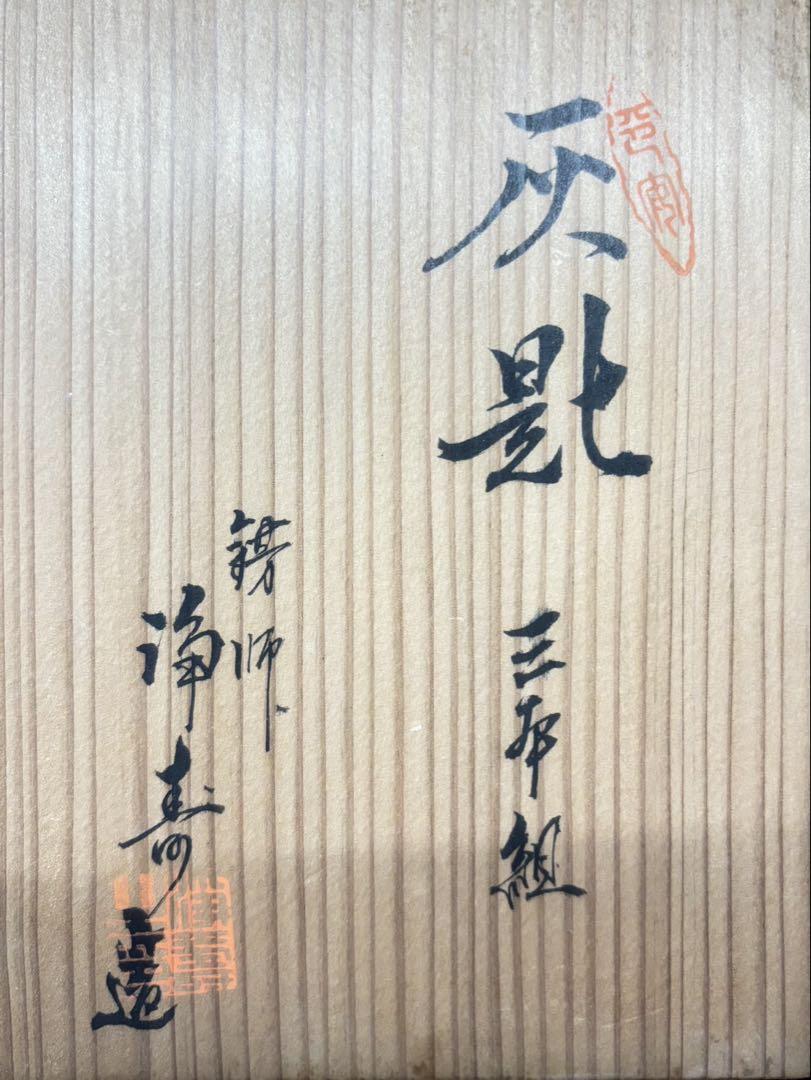 灰匙 三本組
錺師
浄寿造